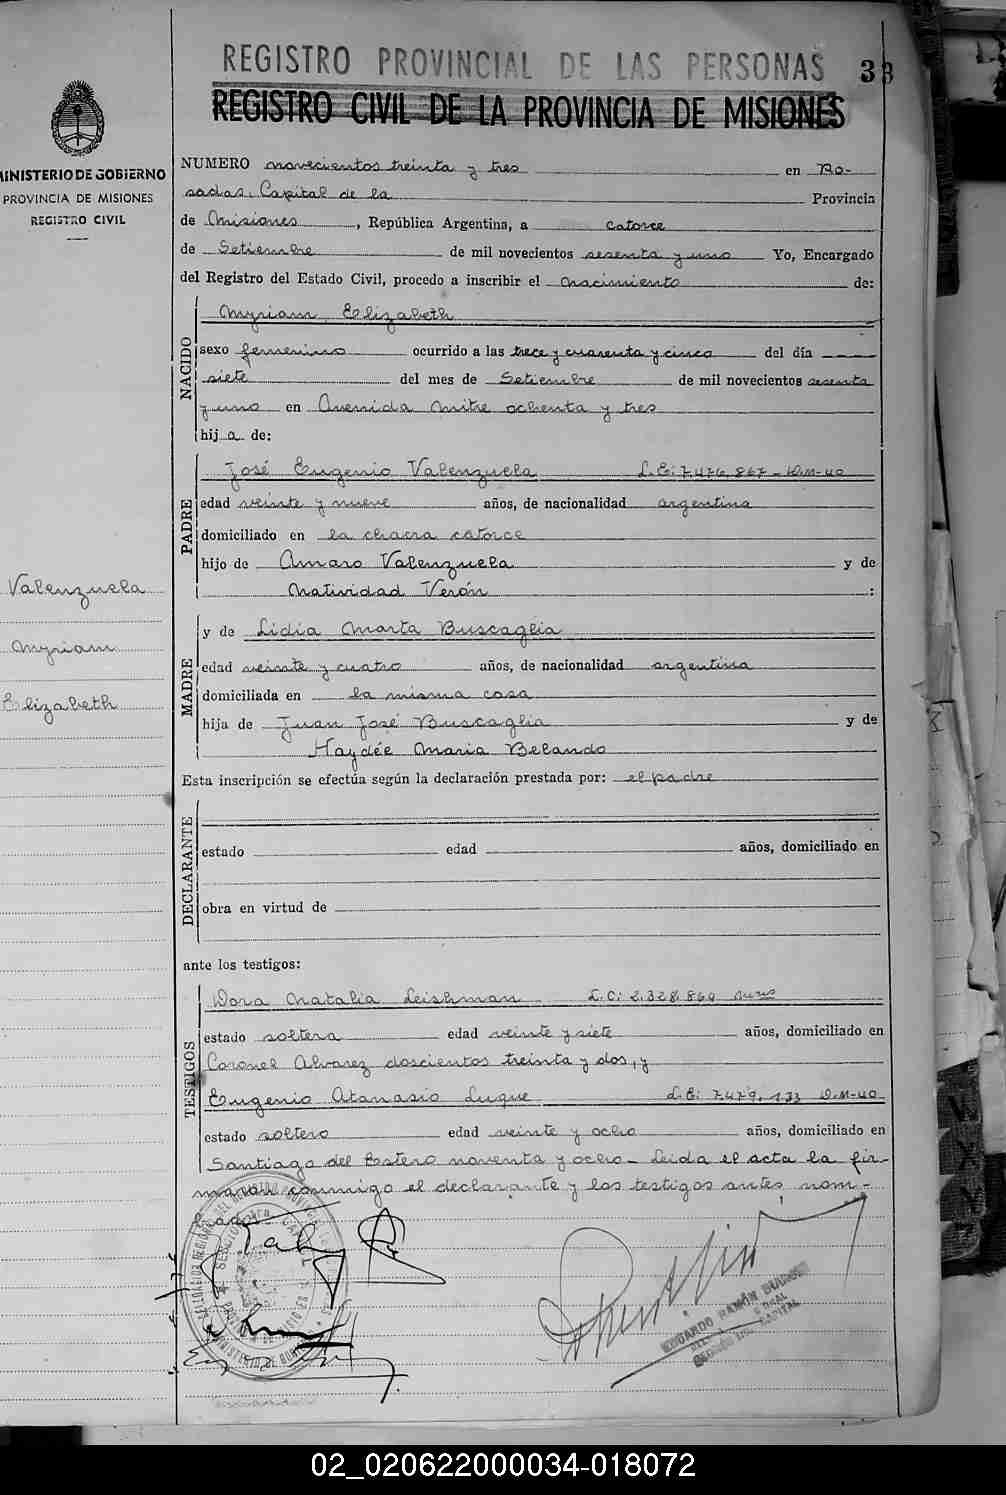 REGISTRO PROVINCIAL DE LAS PERSONAS 33
REGISTRO CIVIL DE LA PROVINCIA DE MISIONES
MINISTERIO DE GOBIERNO
PROVINCIA DE MISIONES
REGISTRO CIVIL
NUMERO novecientos treinta y tres en Po-
sadas, Capital de la Provincia
de Misiones, República Argentina, a catorce
de Setiembre de mil novecientos sesenta y uno Yo, Encargado
del Registro del Estado Civil, procedo a inscribir el nacimiento de:
NACIDO
Myriam Elizabeth
sexo femenino ocurrido a las trece y cuarenta y cinco del día
siete del mes de Setiembre de mil novecientos sesenta
y uno en Avenida Mitre ochenta y tres
hij a de:
PADRE
José Eugenio Valenzuela L.E: 7.476.867 - D.M-40
edad veinte y nueve años, de nacionalidad argentina
domiciliado en la chacra catorce
hijo de Amaro Valenzuela y de
Natividad Verón :
Valenzuela
Myriam
Elizabeth
MADRE
y de Lidia Marta Buscaglia
edad veinte y cuatro años, de nacionalidad argentina
domiciliada en la misma casa
hija de Juan José Buscaglia y de
Haydée Maria Belando
Esta inscripción se efectúa según la declaración prestada por: el padre
DECLARANTE
estado edad años, domiciliado en
obra en virtud de
ante los testigos:
TESTIGOS
Dora Natalia Leishman L.C: 2.328.860
estado soltera edad veinte y siete años, domiciliado en
Coronel Alvarez doscientos treinta y dos, y
Eugenio Atanasio Luque L.E: 7.479.133 D.M-40
estado soltero edad veinte y ocho años, domiciliado en
Santiago del Estero noventa y ocho - Leida el acta la fir-
maron conmigo el declarante y los testigos antes nom-
brados
EDUARDO RAMÓN
CAPITAL
02_020622000034-018072